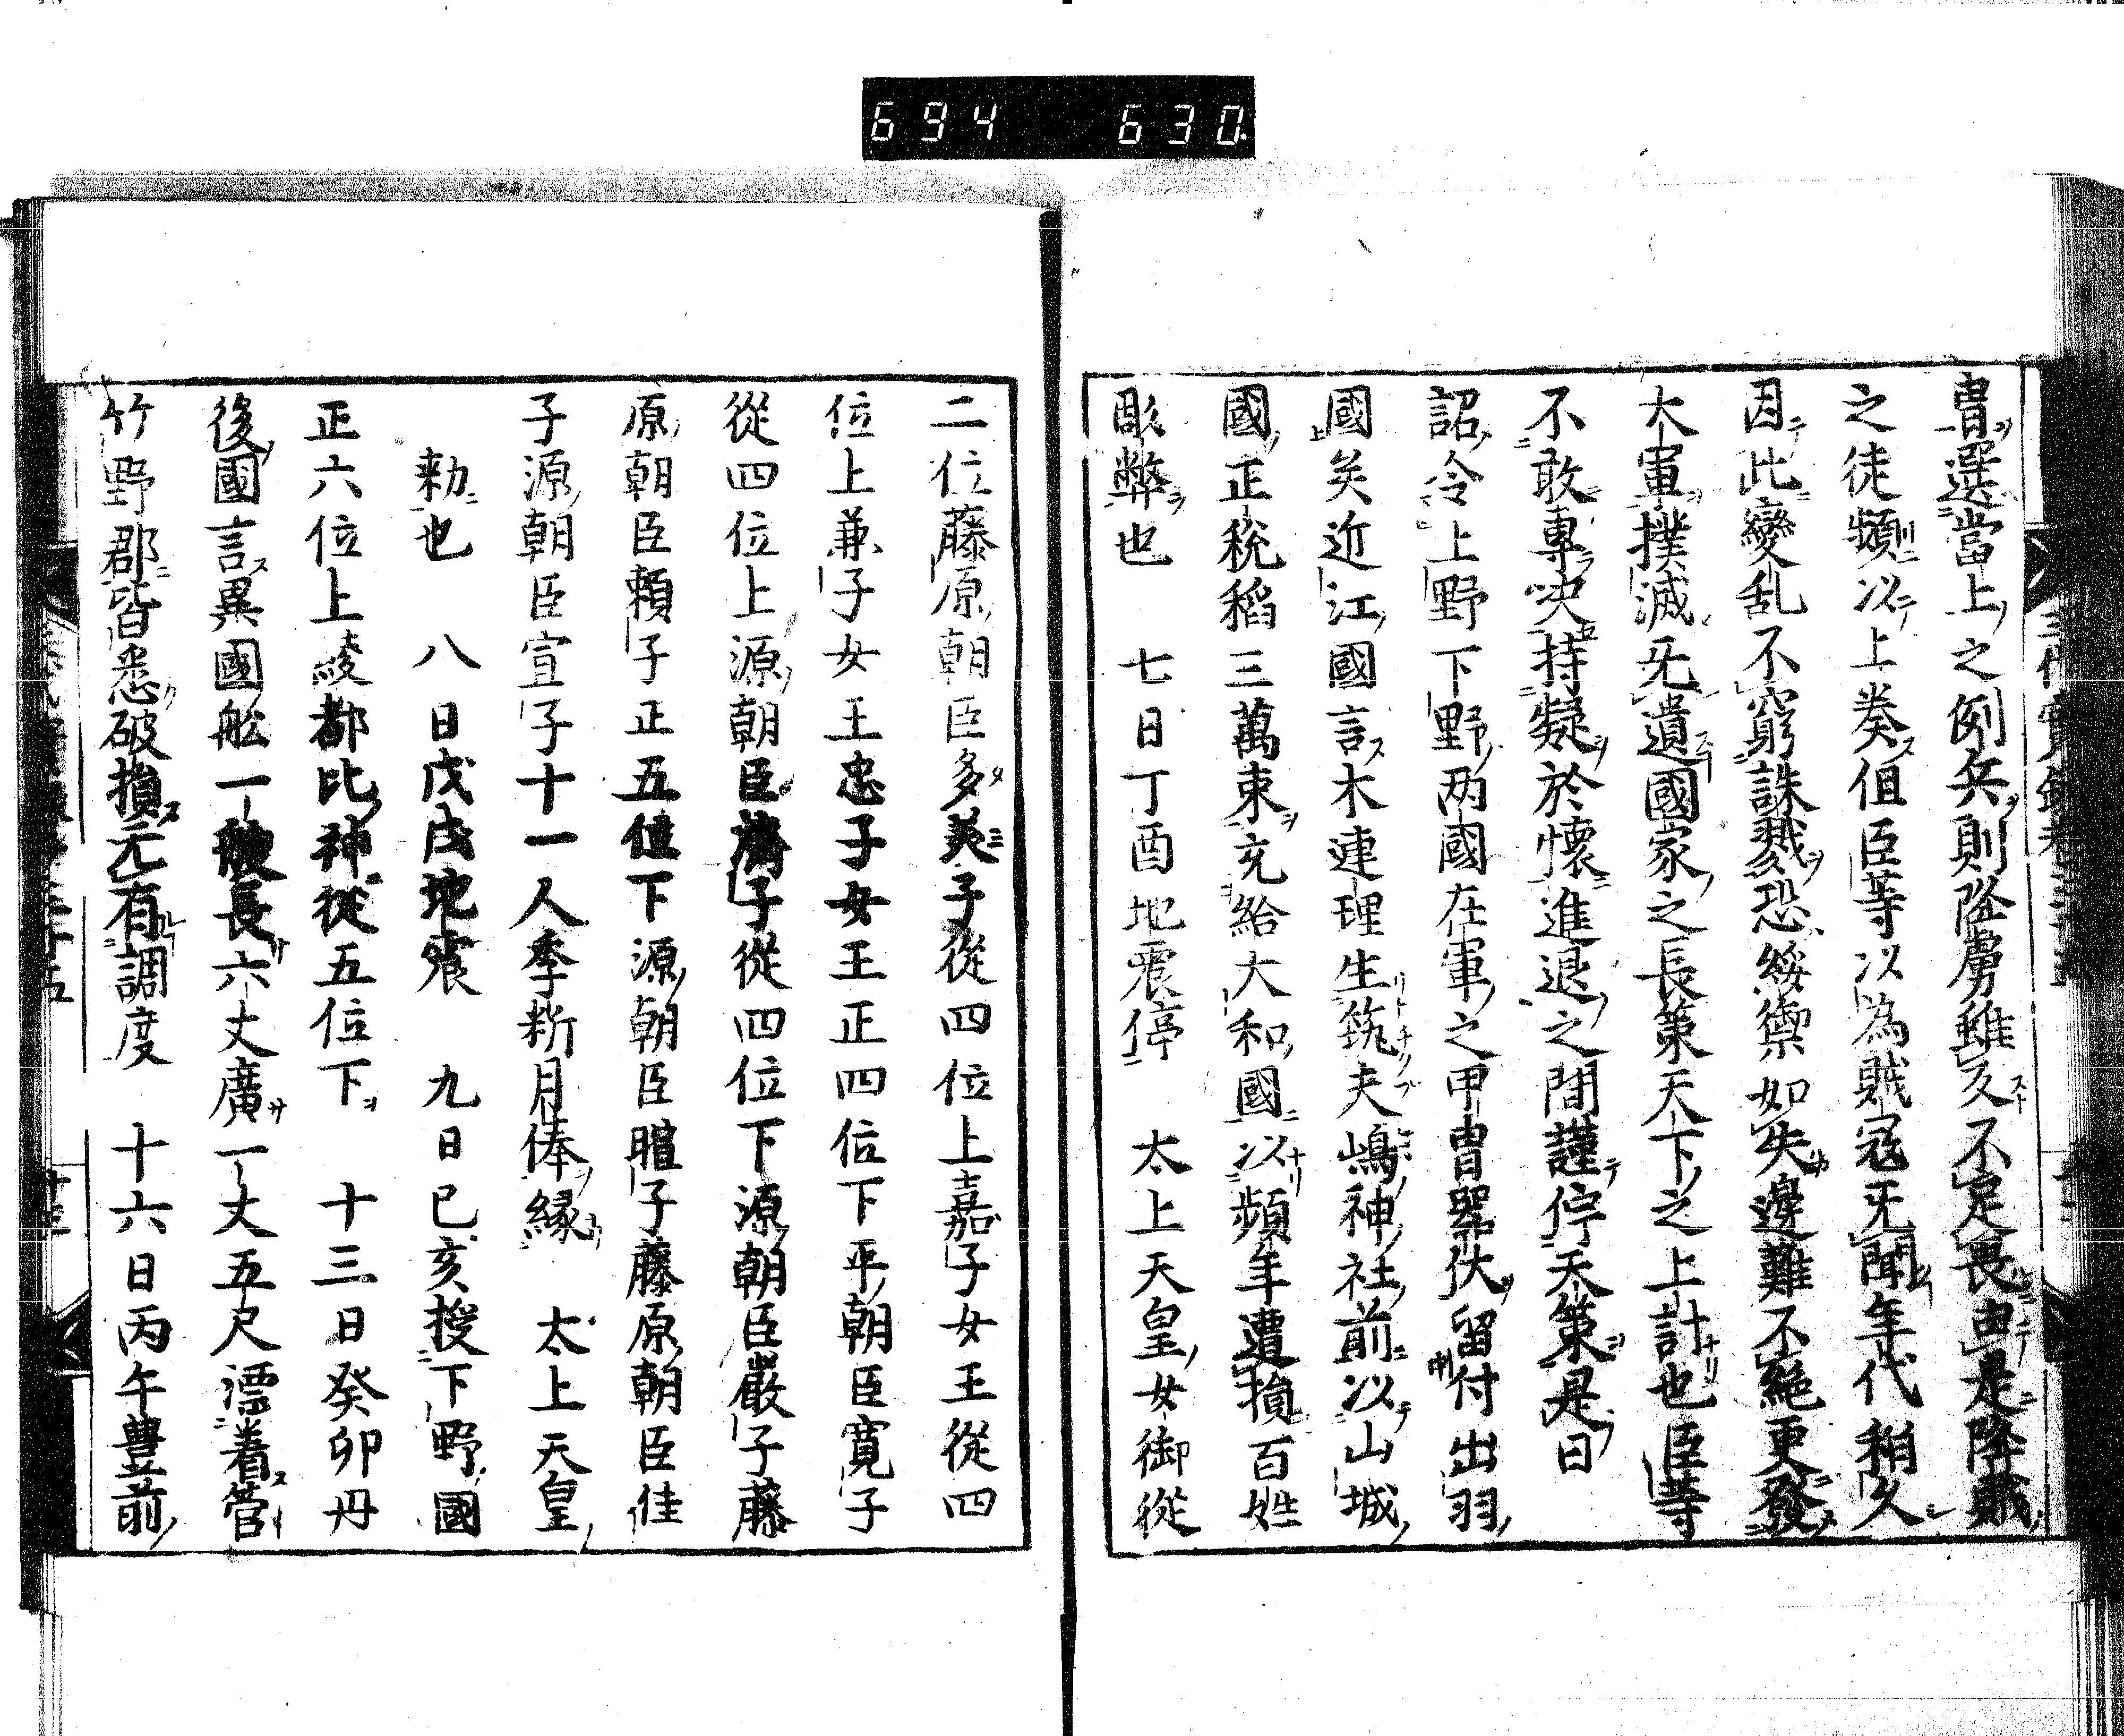 694 630
冑選當上之例兵則降虜雖反不足畏由是降賊
之徒頻以上奏但臣等以為賊冦旡聞年代稍久
因此變乱不窮誅戮恐綏禦如失邊難不絶更發
大軍撲滅旡遺國家之長策天下之上計也臣等
不敢專决持疑於懷進退之間謹佇天策是日
詔令上野下野两國在軍之甲冑器仗留付出羽
國矣近江國言木連理生筑夫嶋神社前以山城
國正税稻三萬束充給大和國以頻年遭損百姓
彫弊也 七日丁酉地震停 太上天皇女御從
二位藤原朝臣多美子從四位上嘉子女王從四
位上兼子女王忠子女王正四位下平朝臣寛子
從四位上源朝臣濟子從四位下源朝臣嚴子藤
原朝臣頼子正五位下源朝臣暄子藤原朝臣佳
子源朝臣宣子十一人季断月俸縁 太上天皇
勅也 八日戊戌地震 九日已亥授下野國
正六位上綾都比神從五位下 十三日癸卯丹
後國言異國舩一艘長六丈廣一丈五尺漂着管
竹野郡皆悉破損元有調度 十六日丙午豊前